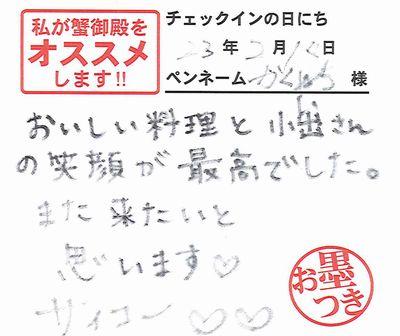 私が蟹御殿を
オススメ
します!!
チェックインの日にち
23年2月 日
ペンネーム 様
おいしい料理と小 さん
の笑顔が最高でした。
また来たいと
思います♡
サイコー♡♡
お墨つき